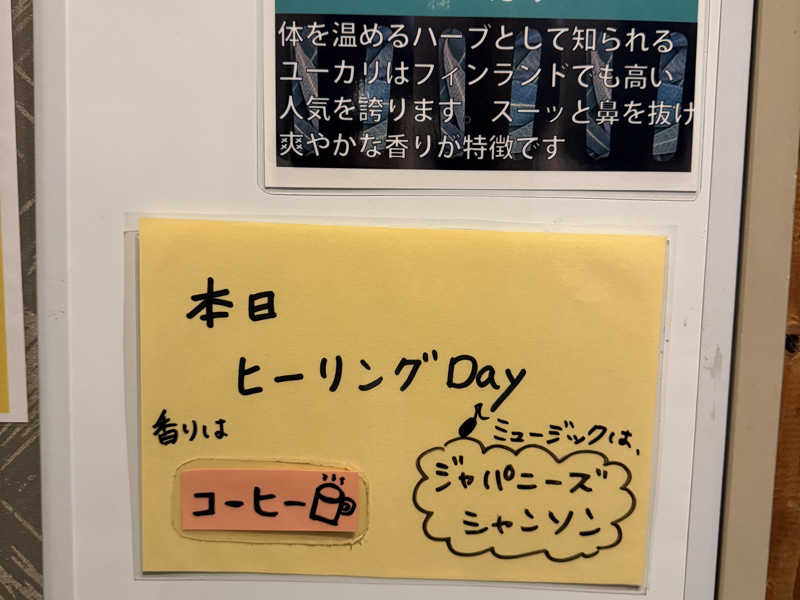 体を温めるハーブとして知られる
ユーカリはフィンランドでも高い
人気を誇ります。スーッと鼻を抜け
爽やかな香りが特徴です
本日
ヒーリングDay
香りは
コーヒー
ミュージックは、
ジャパニーズ
シャンソン